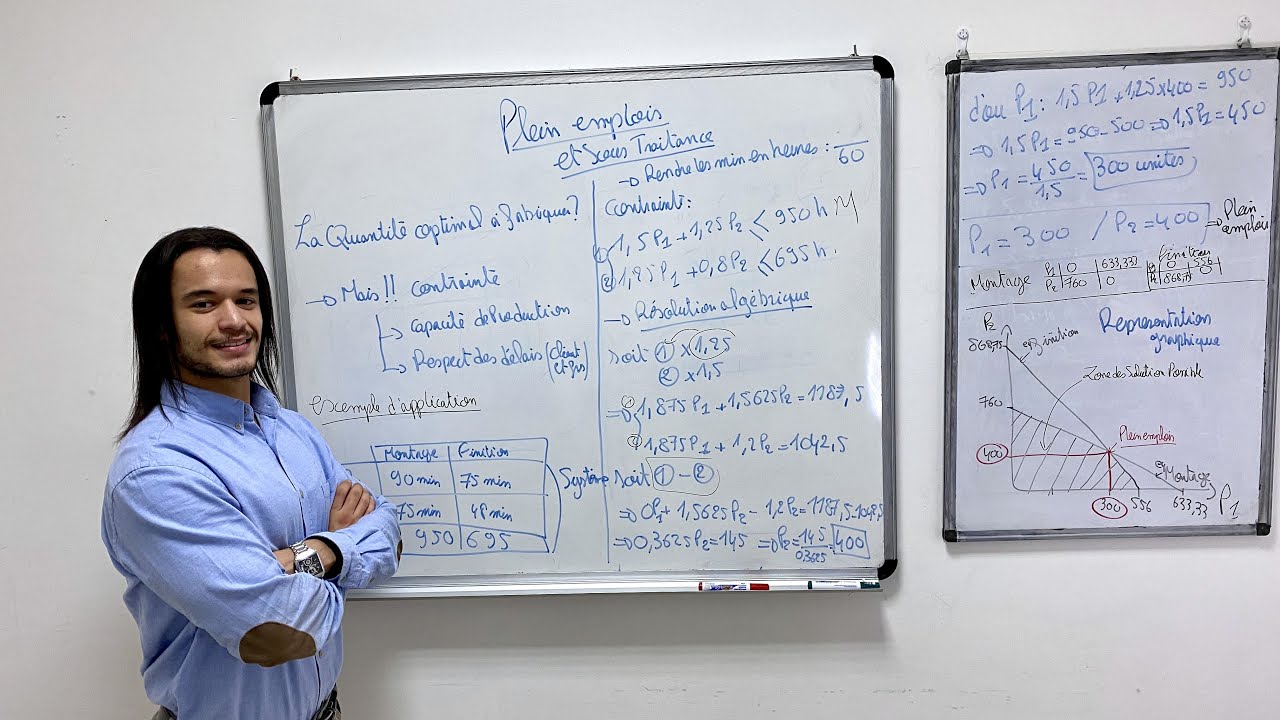 Plein emplois
et Sous Traitance
La Quantité optimal à fabriquer?
→ Mais!! contrainté
↳ Capacité de Production
↳ Respect des délais (client
exemple d'application
Montage | Finition
90 min | 75 min
75 min | 48 min
950 | 695
Système
→ Rendre les min en heures : /60
Contrainte:
① 1,5P1 + 1,25P2 ≤ 950h
② 1,25P1 + 0,8P2 ≤ 695h.
→ Résolution algébrique
Soit ① x 1,25
② x 1,5
⇒ 1,875P1 + 1,5625P2 = 1187,5
1,875P1 + 1,2P2 = 1042,5
Soit ① - ②
⇒ 0P1 + 1,5625P2 - 1,2P2 = 1187,5-1042,5
⇒ 0,3625P2 = 145 ⇒ P2 = 145/0,3625 = 400
d'où P1: 1,5P1 + 1,25x400 = 950
⇒ 1,5P1 = 950-500 ⇒ 1,5P1 = 450
⇒ P1 = 450/1,5 = 300 unités
P1 = 300 / P2 = 400 → Plein emploi
Montage P1 | 0 | 633,333
P2 | 760 | 0
finition
868,75
Representation
graphique
P2
868,75
eq finition
Zone des Solution Possible
760
Plein emploi
400
eq Montage
300
556
633,33
P1